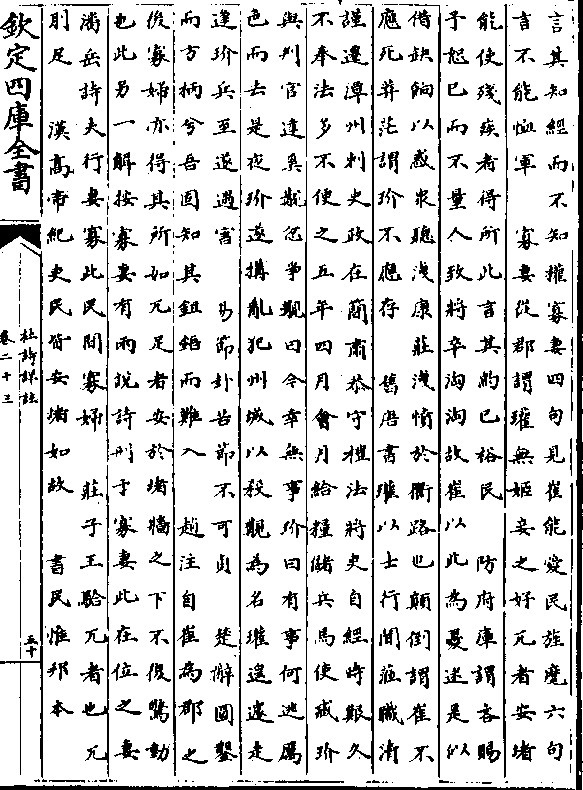 言其知經而不知權寡妻四句見崔能愛民旌麾六句
言不能恤軍 寡妻從郡謂瓘無姬妾之好兀者安堵
能使殘疾者得所此言其約已裕民 防府庫謂吝賜
予恕已而不量人致將卒洶洶故崔以此為憂迷是似
借缺餉以惑衆聽淺康莊淺憤於衢路也顛倒謂崔不
應死莽茫謂玠不應存 舊唐書瓘以士行聞蒞職清
謹遷潭州刺史政在簡肅恭守禮法將吏自經時艱久
不奉法多不便之五年四月會月給糧儲兵馬使臧玠
與判官達奚覯忿爭覯曰今幸無事玠曰有事何逃厲
色而去是夜玠遂搆亂犯州城以殺覯為名瓘遑遽走
逢玠兵至遂遇害 易節卦苦節不可貞 楚辭圜鑿
而方枘兮吾固知其鉏鋙而難入 趙注自崔為郡之
後寡婦亦得其所如兀足者安於堵牆之下不復驚動
也此另一解按寡妻有兩說詩刑于寡妻此在位之妻
潘岳詩夫行妻寡此民間寡婦 莊子王駘兀者也兀
刖足 漢高帝紀吏民皆安堵如故 書民惟邦本
欽定四庫全書
杜詩詳註
卷二十三
五十